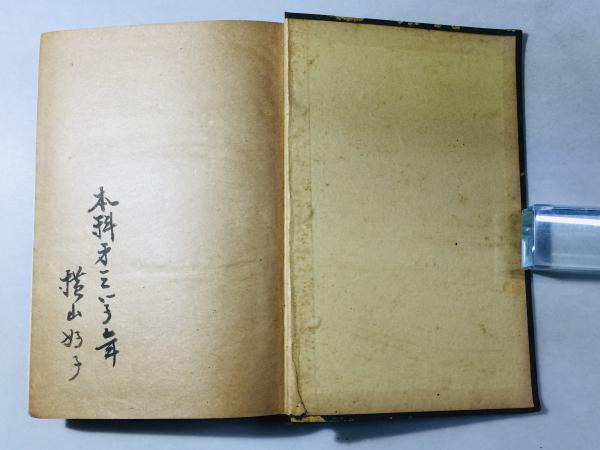 本科第三学年
横山好子